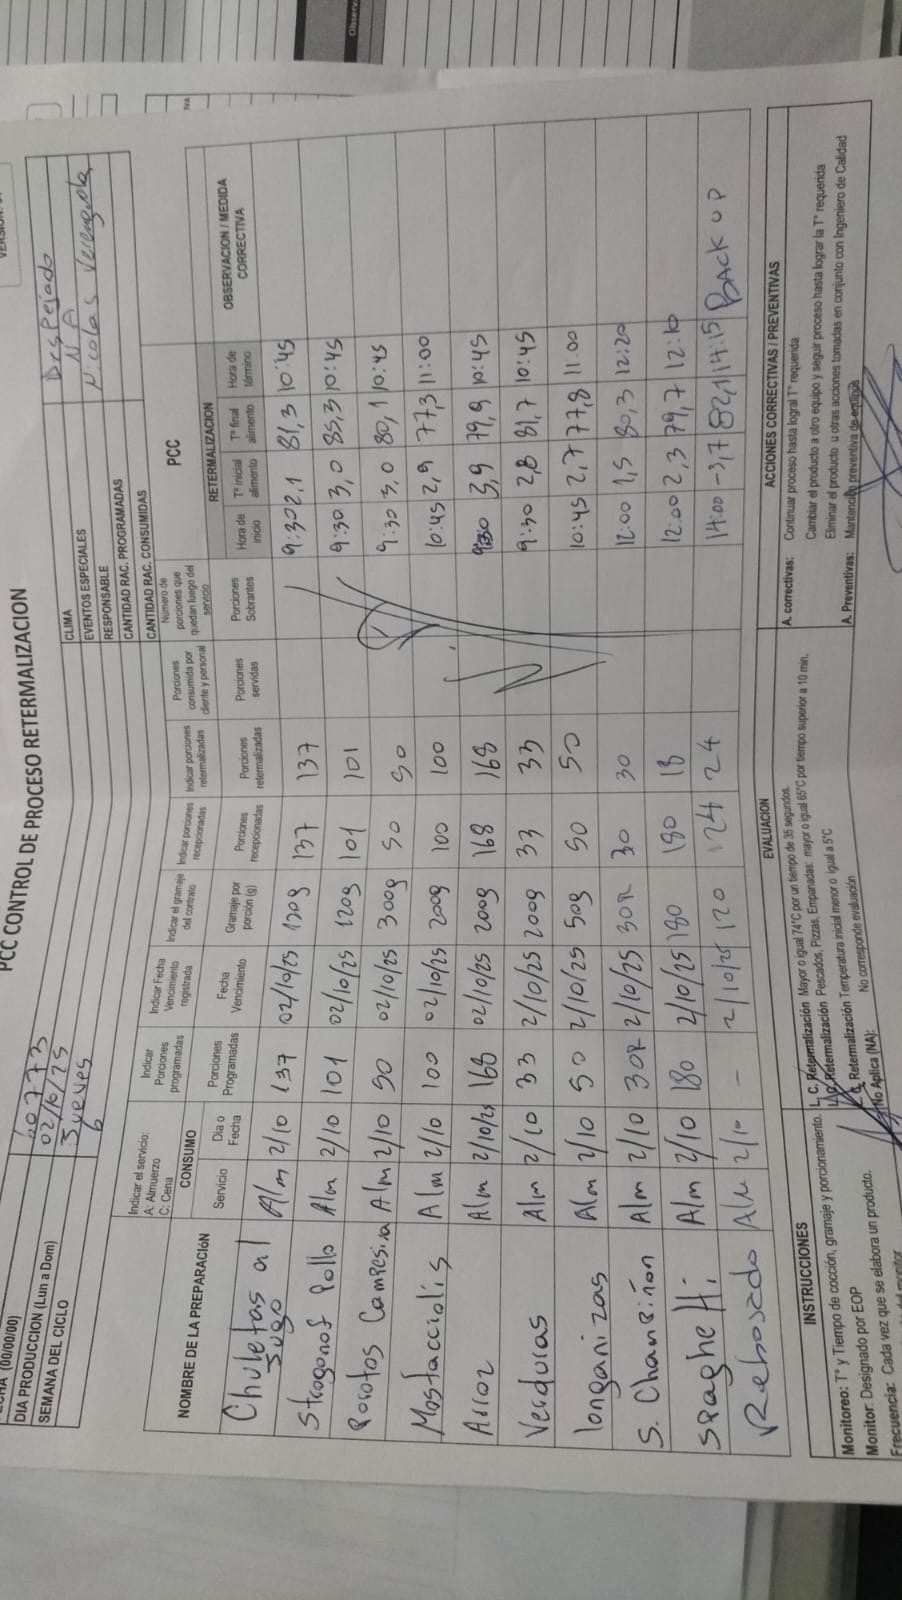 PCC CONTROL DE PROCESO RETERMALIZACION
40773
02/10/25
DIA PRODUCCION (Lun a Dom) Jueves
SEMANA DEL CICLO 6
CLIMA Despejado
EVENTOS ESPECIALES N A
RESPONSABLE Nicolas
CANTIDAD RAC. PROGRAMADAS
CANTIDAD RAC. CONSUMIDAS
NOMBRE DE LA PREPARACIóN
Indicar el servicio:
A: Almuerzo
C: Cena
CONSUMO
Servicio
Dia o Fecha
Indicar Porciones programadas
Porciones Programadas
Indicar Fecha Vencimiento registrada
Fecha Vencimiento
Indicar el gramaje del contrato
Gramaje por porción (g)
Indicar porciones recepcionadas
Porciones recepcionadas
Indicar porciones retermalizadas
Porciones retermalizadas
Porciones consumida por cliente y personal
Porciones servidas
Número de porciones que quedan luego del servicio
Porciones Sobrantes
PCC
RETERMALIZACION
Hora de inicio
T° inicial alimento
T° final alimento
Hora de término
OBSERVACION / MEDIDA CORRECTIVA
Chuletas al Jugo Alm 2/10 137 02/10/25 120g 137 137 9:30 2,1 81,3 10:45
Strogonof Pollo Alm 2/10 101 02/10/25 120g 101 101 9:30 3,0 85,3 10:45
Porotos Campesina Alm 2/10 50 02/10/25 300g 50 50 9:30 3,0 80,1 10:45
Mostacciolis Alm 2/10 100 02/10/25 200g 100 100 10:45 2,9 77,3 11:00
Arroz Alm 2/10/25 168 02/10/25 200g 168 168 9:30 3,9 79,9 10:45
Verduras Alm 2/10 33 2/10/25 200g 33 33 9:30 2,8 81,7 10:45
longanizas Alm 2/10 50 2/10/25 50g 50 50 10:45 2,7 77,8 11:00
S. Chanpiñon Alm 2/10 30R 2/10/25 30R 30 30 12:00 1,5 80,3 12:20
Spaghetti Alm 2/10 180 2/10/25 180 180 18 12:00 2,3 79,7 12:10
Rebosado Alm 2/10 - 2/10/25 120 124 24 14:00 -3,7 82,1 14:15 BACK UP
INSTRUCCIONES
Monitoreo: T° y Tiempo de cocción, gramaje y porcionamiento.
Monitor: Designado por EOP
Frecuencia: Cada vez que se elabora un producto.
EVALUACION
L. C. Retermalización Mayor o igual 74°C por un tiempo de 35 segundos.
L. C. Retermalización Pescados, Pizzas, Empanadas: mayor o igual 65°C por tiempo superior a 10 min.
L. C. Retermalización Temperatura inicial menor o igual a 5°C
No Aplica (NA): No corresponde evaluación
ACCIONES CORRECTIVAS / PREVENTIVAS
A. correctivas: Continuar proceso hasta logral T° requerida
Cambiar el producto a otro equipo y seguir proceso hasta lograr la T° requerida
Eliminar el producto u otras acciones tomadas en conjunto con Ingeniero de Calidad
A. Preventivas: Mantención preventiva de equipos